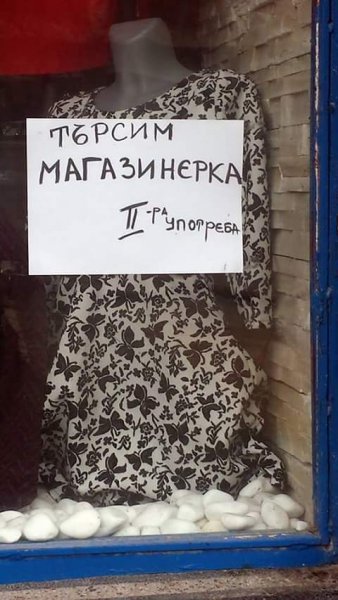 ТЪРСИМ
МАГАЗИНЕРКА
II-РА УПОТРЕБА